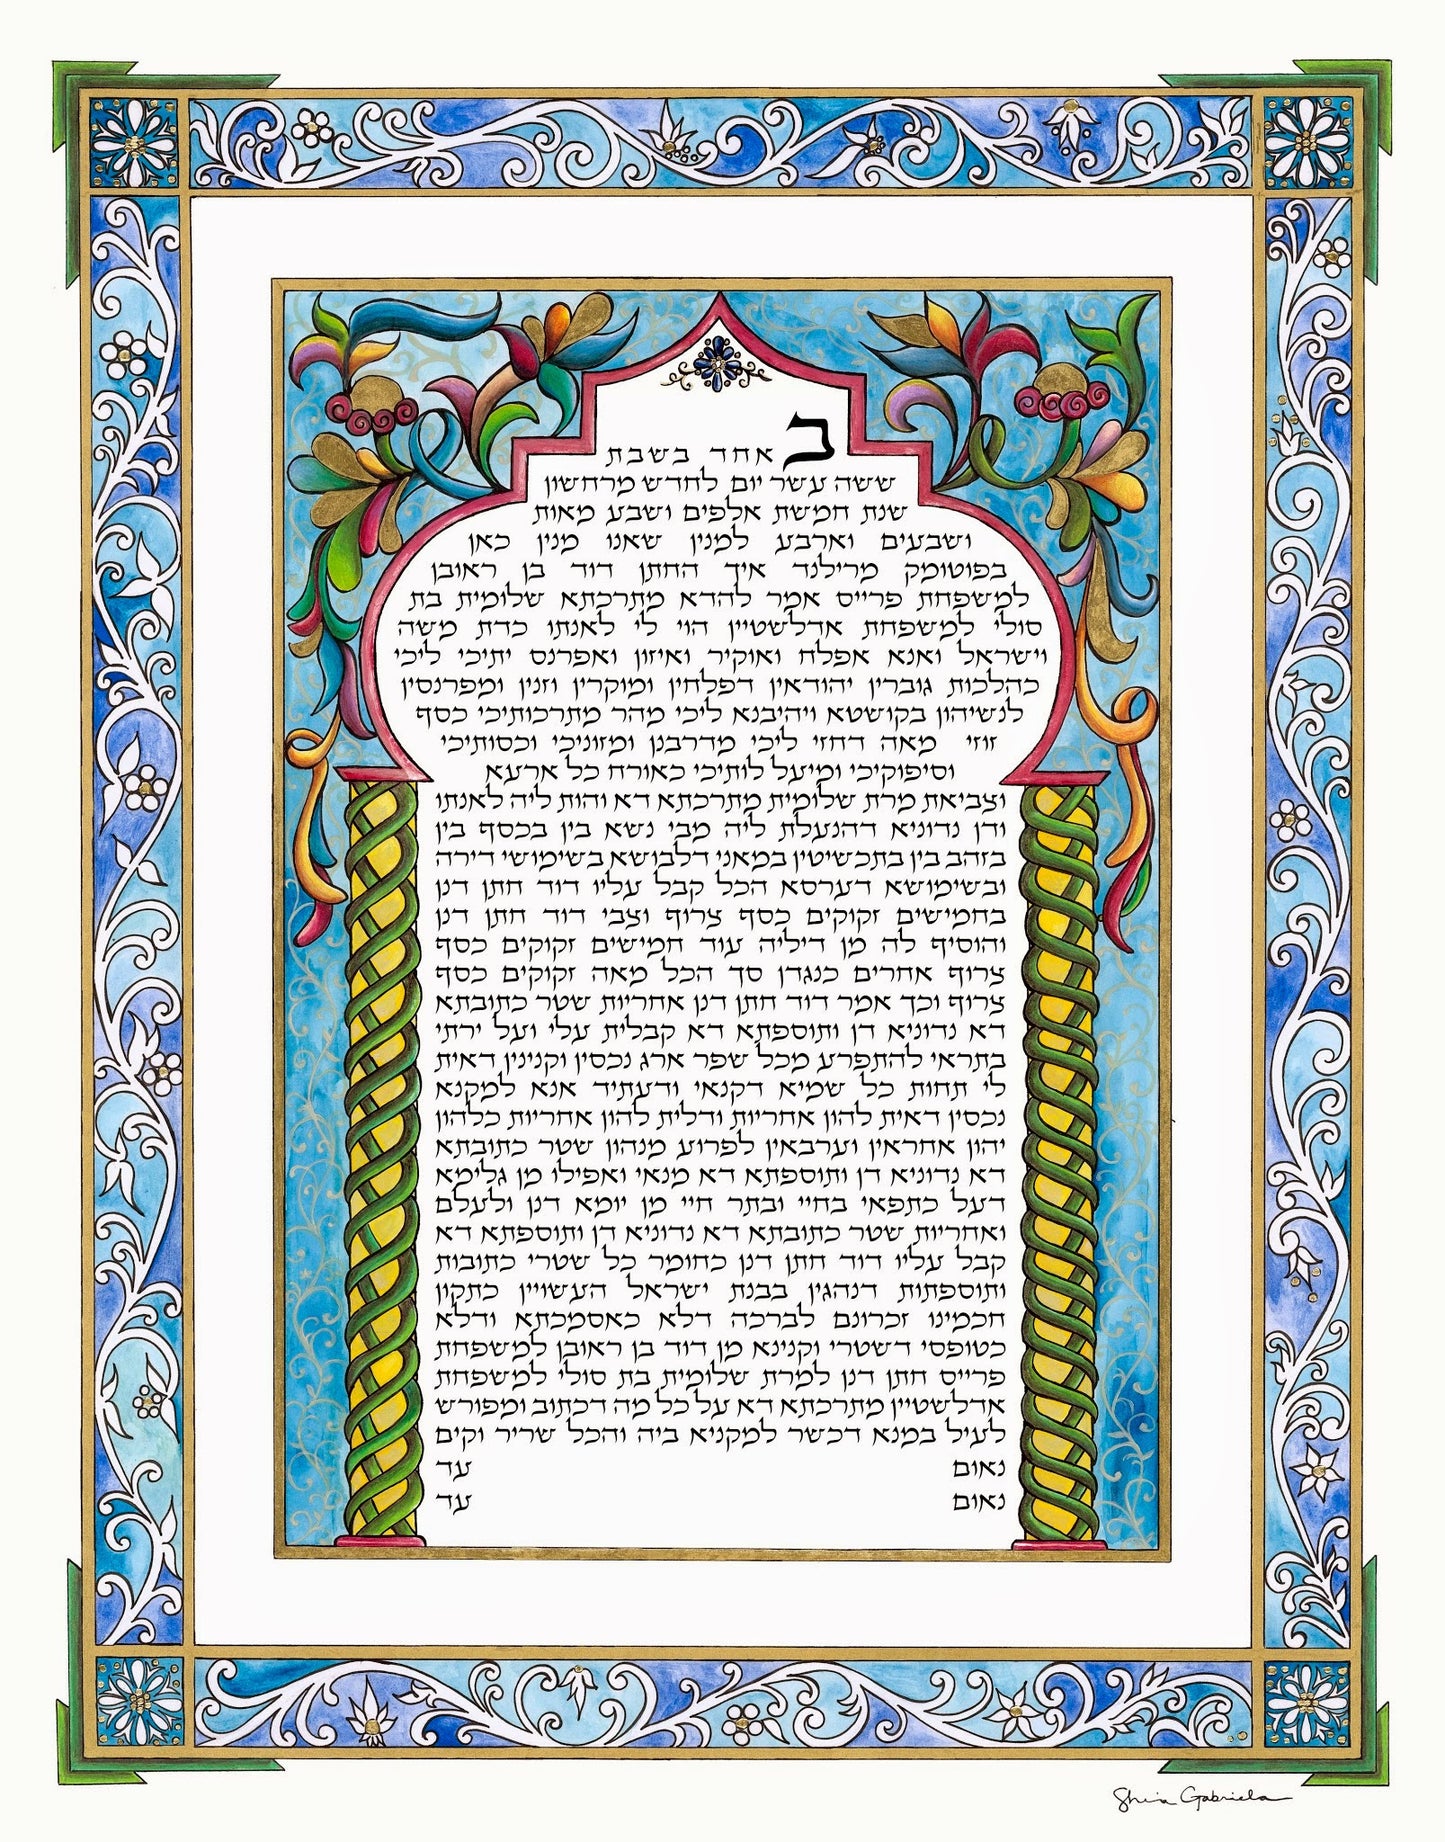 ב אחד בשבת
ששה עשר יום לחדש מרחשון
שנת חמשת אלפים ושבע מאות
ושבעים וארבע למנין שאנו מנין כאן
בפוטומק מרילנד איך החתן דוד בן ראובן
למשפחת פרייס אמר להדא מתרכתא שלומית בת
סולי למשפחת אדלשטיין הוי לי לאנתו כדת משה
וישראל ואנא אפלח ואוקיר ואיזון ואפרנס יתיכי ליכי
כהלכות גוברין יהודאין דפלחין ומוקרין וזנין ומפרנסין
לנשיהון בקושטא ויהיבנא ליכי מהר מתרכותיכי כסף
זוזי מאה דחזי ליכי מדרבנן ומזוניכי וכסותיכי
וסיפוקיכי ומיעל לותיכי כאורח כל ארעא
וצביאת מרת שלומית מתרכתא דא והות ליה לאנתו
ודן נדוניא דהנעלת ליה מבי נשא בין בכסף בין
בזהב בין בתכשיטין במאני דלבושא בשימושי דירה
ובשימושא דערסא הכל קבל עליו דוד חתן דנן
בחמישים זקוקים כסף צרוף וצבי דוד חתן דנן
והוסיף לה מן דיליה עוד חמישים זקוקים כסף
צרוף אחרים כנגדן סך הכל מאה זקוקים כסף
צרוף וכך אמר דוד חתן דנן אחריות שטר כתובתא
דא נדוניא דן ותוספתא דא קבלית עלי ועל ירתי
בתראי להתפרע מכל שפר ארג נכסין וקנינין דאית
לי תחות כל שמיא דקנאי ודעתיד אנא למקנא
נכסין דאית להון אחריות ודלית להון אחריות כלהון
יהון אחראין וערבאין לפרוע מנהון שטר כתובתא
דא נדוניא דן ותוספתא דא מנאי ואפילו מן גלימא
דעל כתפאי בחיי ובתר חיי מן יומא דנן ולעלם
ואחריות שטר כתובתא דא נדוניא דן ותוספתא דא
קבל עליו דוד חתן דנן כחומר כל שטרי כתובות
ותוספתות דנהגין בבנת ישראל העשויין כתקון
חכמינו זכרונם לברכה דלא כאסמכתא ודלא
כטופסי דשטרי וקנינא מן דוד בן ראובן למשפחת
פרייס חתן דנן למרת שלומית בת סולי למשפחת
אדלשטיין מתרכתא דא על כל מה דכתוב ומפורש
לעיל במנא דכשר למקניא ביה והכל שריר וקים
נאום עד
נאום עד
Gabriela